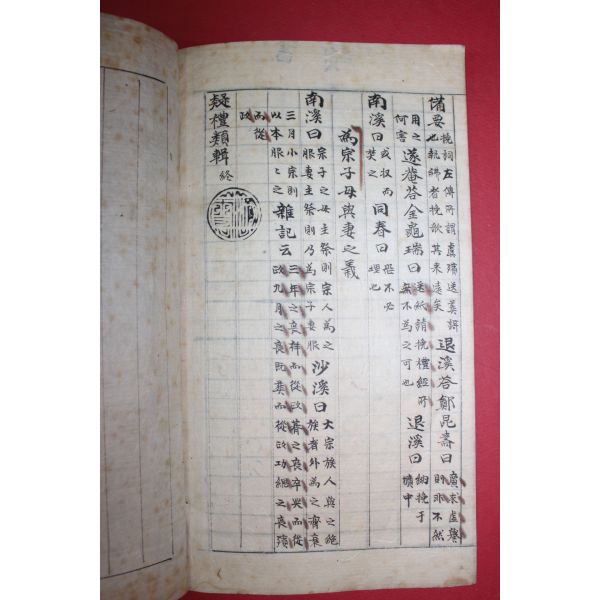 備要挽詞左傳所謂虞殯送葬謌也執紼者挽歌其來遠矣退溪答鄭昆壽曰廣求虛譽則非不然
用之何害遂菴答金龜瑞曰送紙請挽禮經所無不為之可也退溪曰納挽于壙中
南溪曰或収而焚之同春曰恐不必理也
為宗子母與妻之義
南溪曰宗子之母主祭則宗人為之服妻主祭則乃為宗子妻服沙溪曰大宗族人與之絶族者外為之齊衰
三月小宗則以本服〻之雜記云三年之喪祥而從政朞之喪卒哭而從政九月之喪既葬而從政功緦之喪殯
而從政
疑禮類輯 終